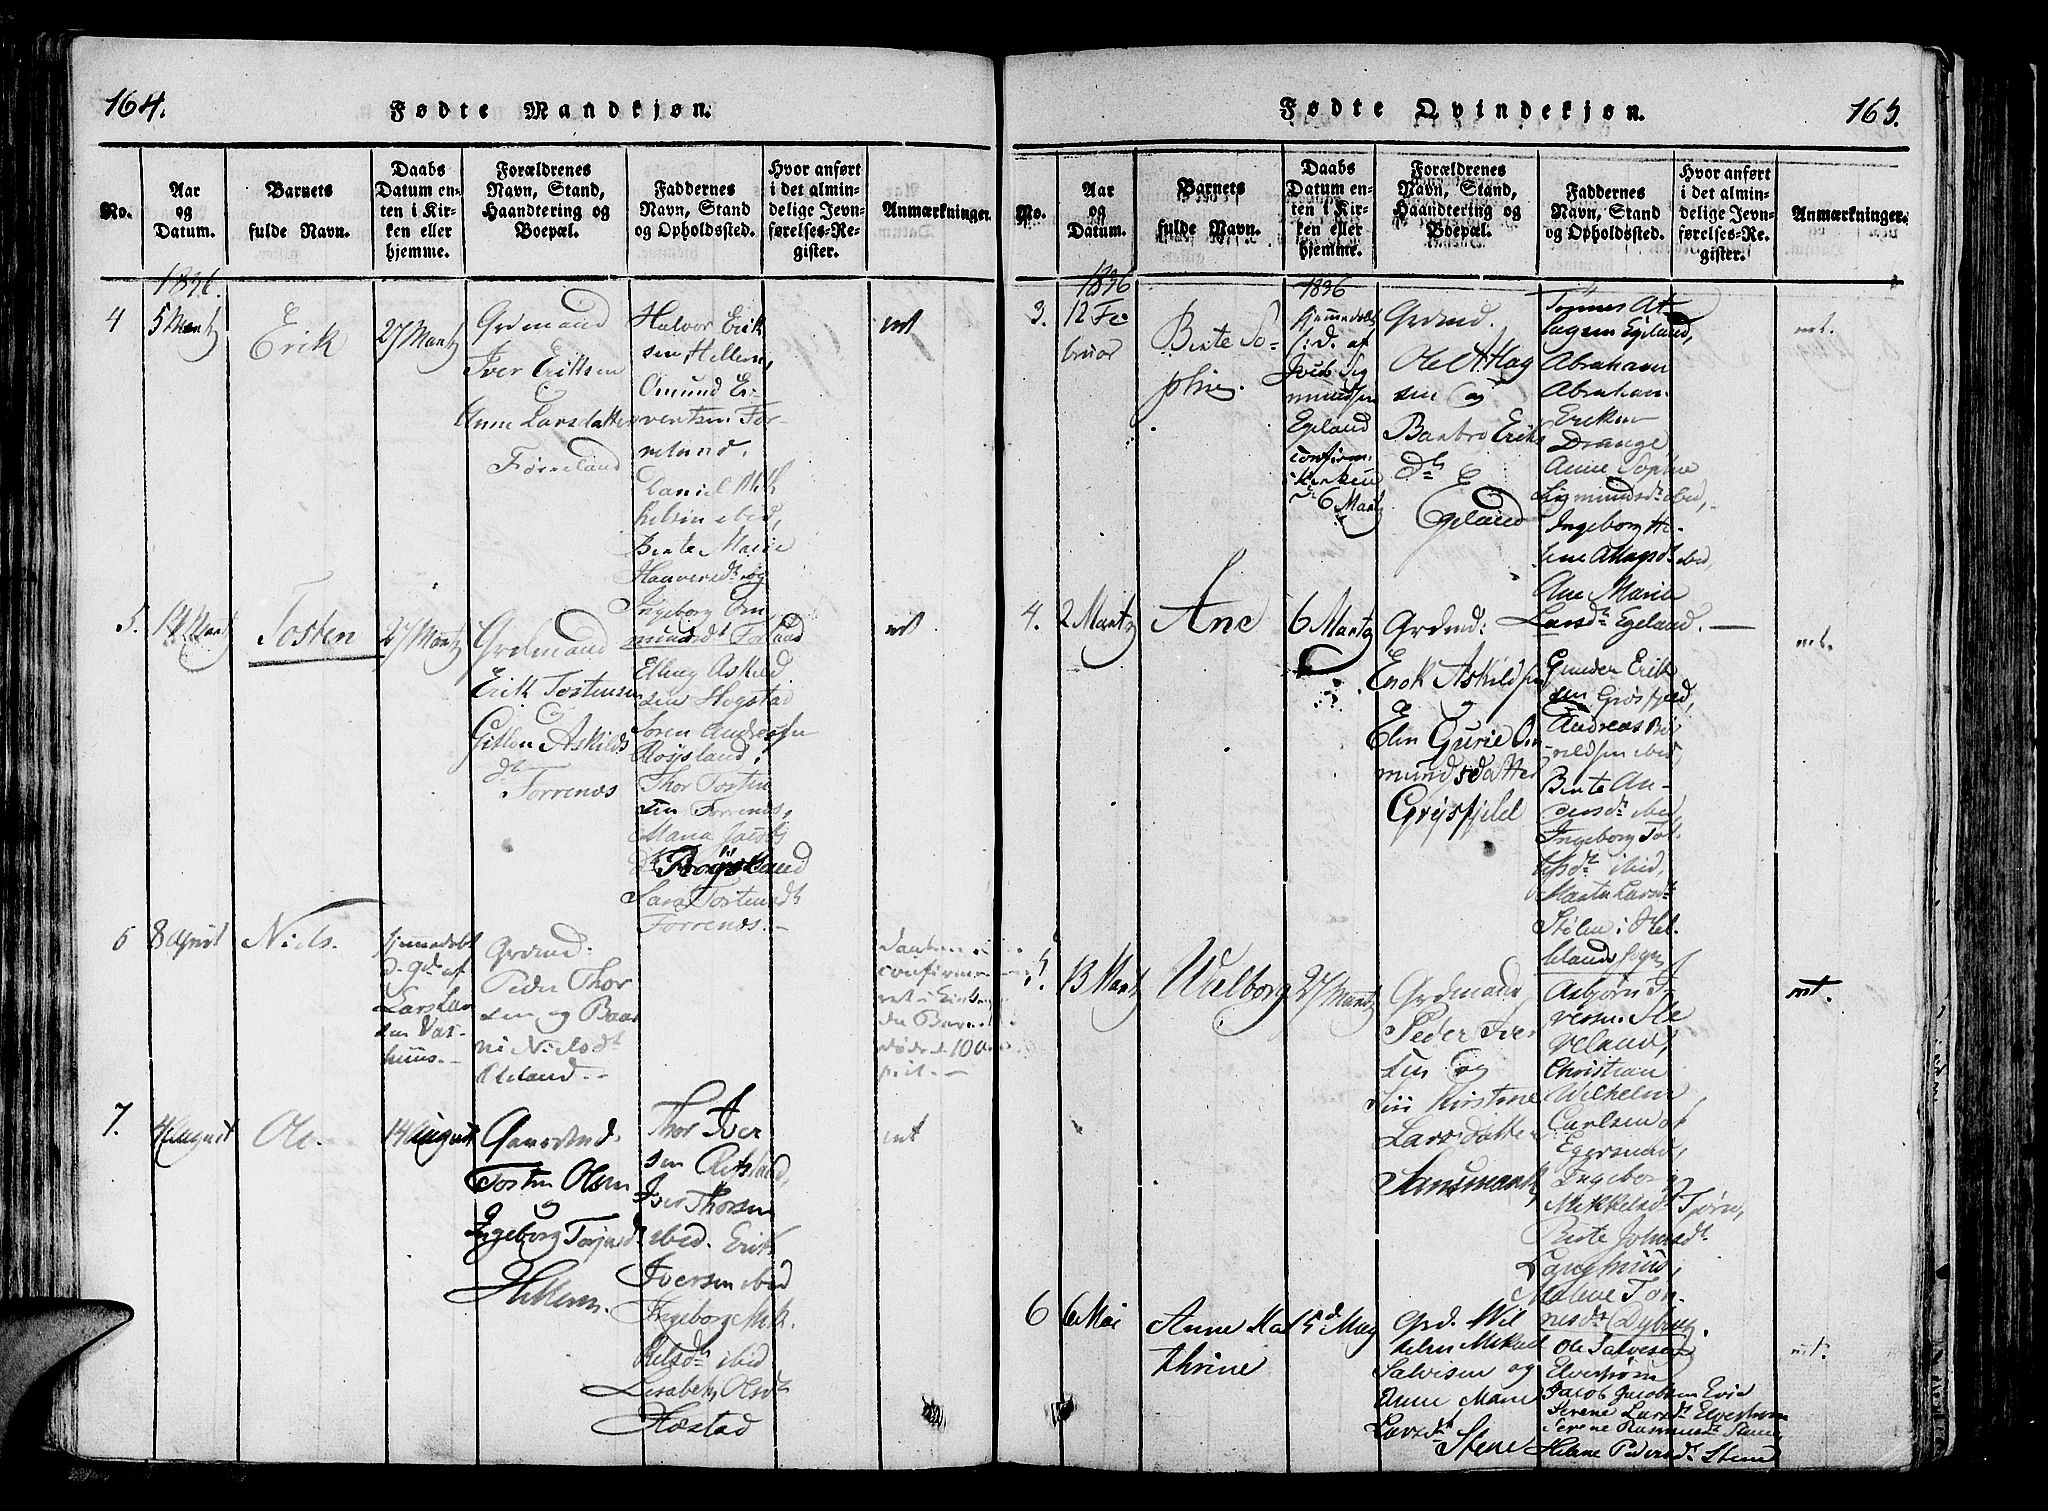 164.
Fødte Mandkjøn.
No.
Aar
og
Datum.
Barnets
fulde Navn.
Daabs
Datum en-
ten i Kir-
ken eller
hjemme.
Forældrenes
Navn, Stand,
Haandtering og
Boepæl.
Faddernes
Navn, Stand
og Opholdssted.
Hvor anført
i det almin-
delige Jevn-
førelses-Re-
gister.
Anmærkninger.
1836.
4
5 Martz
Erik
27 Martz
Grdmand
Iver Eriksen
og
Anne Larsdatter
Førreland
Halvor Erik
sen Hellem,
Omund Ei-
vertsen For-
reland.
Daniel Mik
kelsen ibid,
Berte Marie
Haaversdt og
Ingeborg Om
mundsdt Forland
nt
5.
14 Martz
Tosten
27 Martz
Grdmand
Erik Tostensen
og
Askilds
dt
Torrenes
Elling Askild
sen Hogstad
Soren Andreasen
Røysland,
Thor Tosten
sen Torrenes,
Maria
dt Røysland
Sara Tostensdt
Torrenes.—
nt
6
8 August
Niels.
hjemmedøbt
af
Lars Lar
sen Var-
huus.—
Grdmd:
Peder Thor
sen og
Nielsdt
confirme
ret i Kirke
Barnet
døde d. 10
7.
4 August
Ole.
14 August
Gaardmd.
Tosten Olsen
og
Ingeborg Torjusdt
Hellem.
Thor Iver
sen
Iver Thorsen
ibid. Erik
Iversen ibid
Ingeborg Mik
kelsdt ibid
Lisabeth Olsdt
Hæstad
nt
165.
Fødte Qvindekjøn.
No.
Aar
og
Datum.
Barnets
fulde Navn.
Daabs
Datum en-
ten i Kir-
ken eller
hjemme.
Forældrenes
Navn, Stand,
Haandtering og
Boepæl.
Faddernes
Navn, Stand
og Opholdssted.
Hvor anført
i det almin-
delige Jevn-
førelses-Re-
gister.
Anmærkninger.
1836
1836
3.
12 Fe
bruar
Berte So=
phie.
hjemmedøbt
af
Sig
mundsen
Egeland
confirm.
i Kirken
6 Martz
Grdmd.
Ole Atlag
sen og
Barbro Eriks
dt
Egeland
Tønnes At-
lagsen Egeland,
Abraham
Abraham
Eriksen
Drange
Anne Sophie
Sigmundsdt ibid,
Ingeborg He-
lene Atlagsdt ibid,
Ane Marie
Larsdt Egeland.—
nt.
4.
2 Martz
Ane
6 Martz
Grdmd:
Enok Askildsen
og
Elen Gurie Om
mundsdatter
Grøsfjeld
Gunder Erik
sen Grøsfjeld,
Andreas
ibid,
Berte An-
dersdt ibid,
Ingeborg Tol-
lefsdt ibid,
Marte Larsdt
Stølen i Hel-
lelands Sogn
nt.
5.
13 Martz
Welborg
27 Martz
Grdmand,
Peder Iver
sen og
Siri Kirstine
Larsdatter
Asbjørn I-
versen He
veland,
Christian
Wilhelm
Carlsen af
Egersund,
Ingeborg
Mikkelsdt Tjørn,
Berte Johnsdt
Langhuus,
Malene Tøn-
nesdt Dybing.
nt.
6
6 Mai
Anne Kat
thrine
15d May
Grd. Wil
helm Mikael
Salvesen og
Anne Marie
Larsdt
Stene
Ole Salvesen
Elvestrøm
Jacob Jacobsen Evie
Serene Larsdt Elvestrøm
Serene Rasmusdt Stene
Helene Pedersdt Stene
nt.